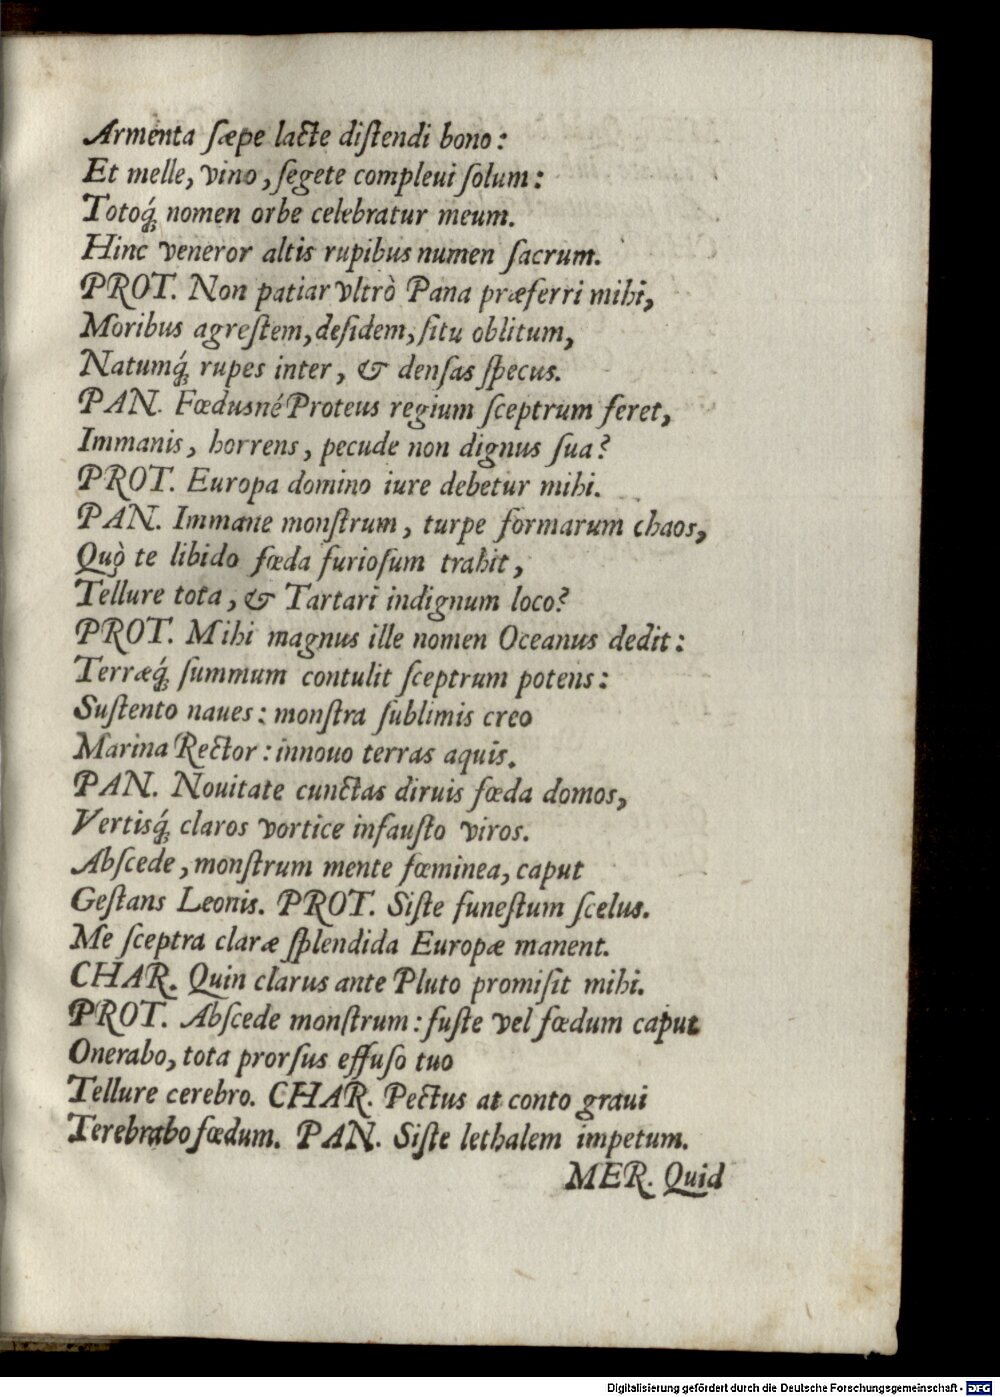 Armenta sæpe lacte distendi bono:
Et melle, vino, segete compleui solum:
Totoq́; nomen orbe celebratur meum.
Hinc veneror altis rupibus numen sacrum.
PROT. Non patiar vltrò Pana præferri mihi,
Moribus agrestem, desidem, situ oblitum,
Natumq́; rupes inter, & densas specus.
PAN. Fœdusné Proteus regium sceptrum feret,
Immanis, horrens, pecude non dignus sua?
PROT. Europa domino iure debetur mihi.
PAN. Immane monstrum, turpe formarum chaos,
Quò te libido fœda furiosum trahit,
Tellure tota, & Tartari indignum loco?
PROT. Mihi magnus ille nomen Oceanus dedit:
Terræq́; summum contulit sceptrum potens:
Sustento naues: monstra sublimis creo
Marina Rector: innouo terras aquis.
PAN. Nouitate cunctas diruis fœda domos,
Vertisq́; claros vortice infausto viros.
Abscede, monstrum mente fœminea, caput
Gestans Leonis. PROT. Siste funestum scelus.
Me sceptra claræ splendida Europæ manent.
CHAR. Quin clarus ante Pluto promisit mihi.
PROT. Abscede monstrum: fuste vel fœdum caput
Onerabo, tota prorsus effuso tuo
Tellure cerebro. CHAR. Pectus at conto graui
Terebrabo fœdum. PAN. Siste lethalem impetum.
MER. Quid
Digitalisierung gefördert durch die Deutsche Forschungsgemeinschaft - DFG